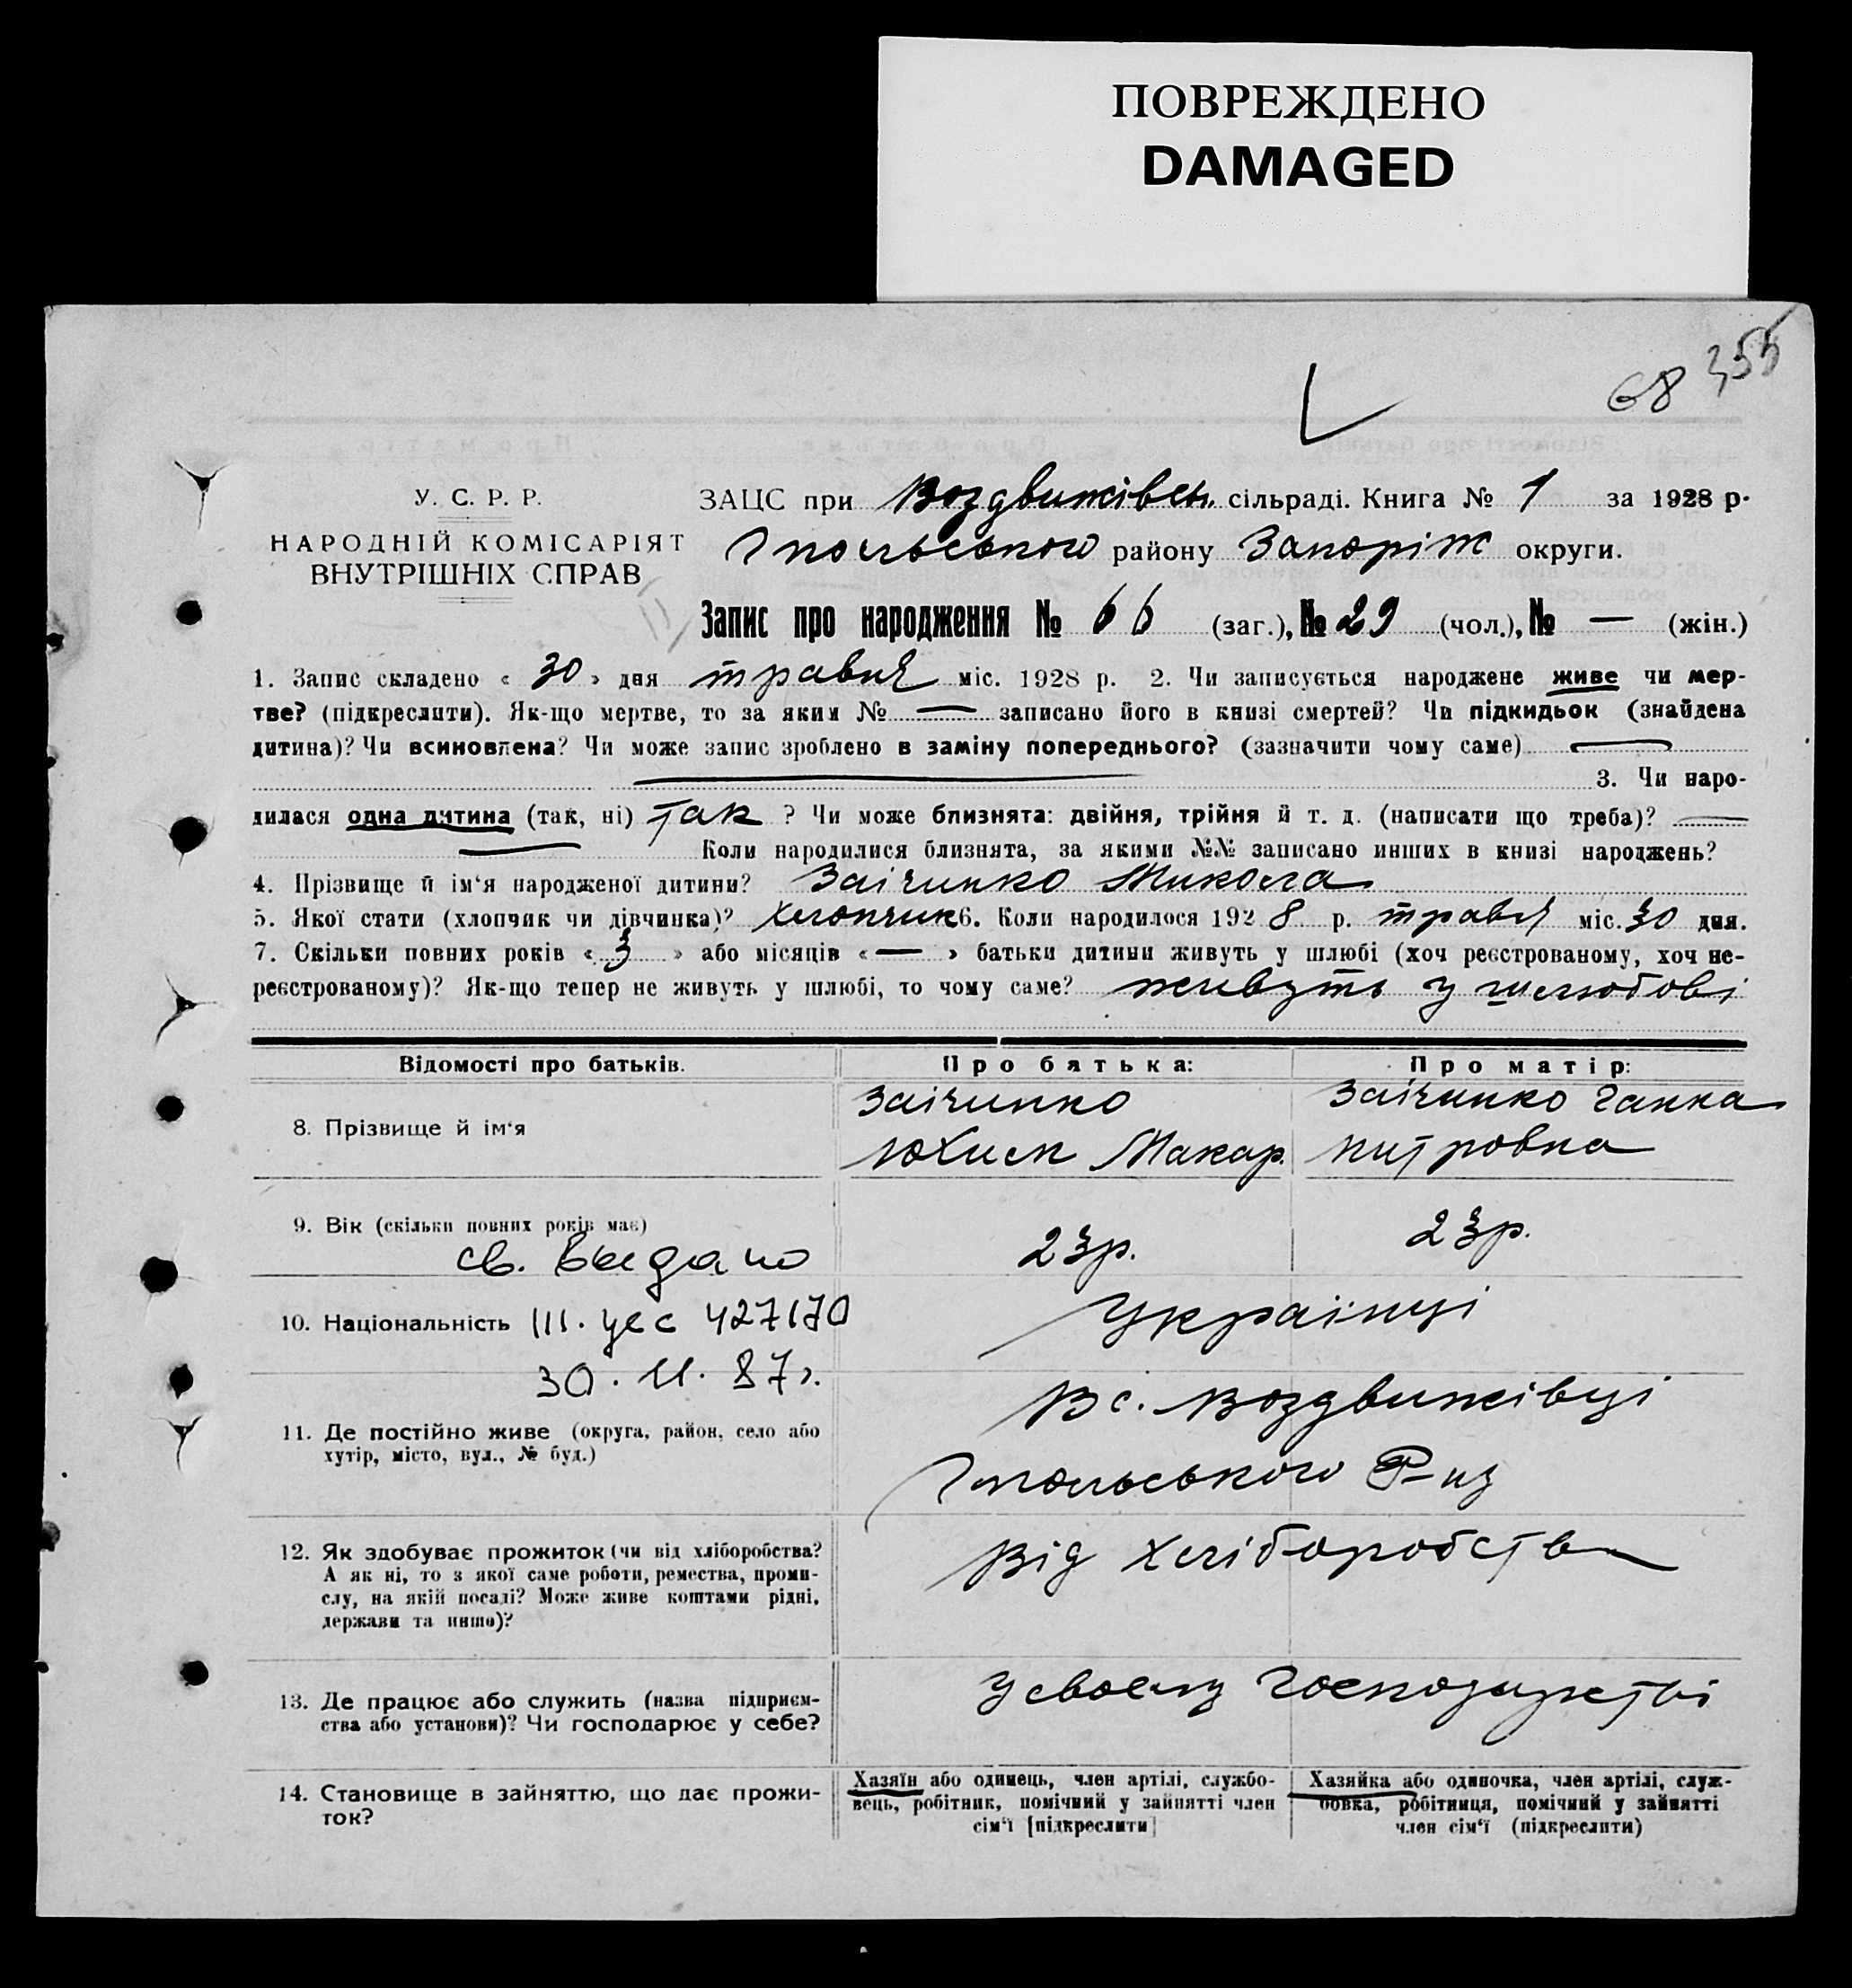 ПОВРЕЖДЕНО
DAMAGED
68 355
У. С. Р. Р.
НАРОДНІЙ КОМІСАРІЯТ
ВНУТРІШНІХ СПРАВ
ЗАЦС при Воздвижівськ. сільраді. Книга № 1 за 1928 р.
району Запоріж округи.
Запис про народження № 66 (заг.), № 29 (чол.), № — (жін.)
1. Запис складено « 30 » дня травня міс. 1928 р. 2. Чи записується народжене живе чи мер-
тве? (підкреслити). Як-що мертве, то за яким № — записано його в книзі смертей? Чи підкидьок (знайдена
дитина)? Чи всиновлена? Чи може запис зроблено в заміну попереднього? (зазначити чому саме) —
— 3. Чи наро-
дилася одна дитина (так, ні) Так ? Чи може близнята: двійня, трійня й т. д. (написати що треба)? —
— Коли народилися близнята, за якими №№ записано инших в книзі народжень?
4. Прізвище й ім‘я народженої дитини? Заічинко Микола
5. Якої стати (хлопчик чи дівчинка)? Хлопчик 6. Коли народилося 1928 р. травня міс. 30 дня.
7. Скільки повних років « 3 » або місяців « — » батьки дитини живуть у шлюбі (хоч реєстрованому, хоч не-
реєстрованому)? Як-що тепер не живуть у шлюбі, то чому саме? живуть у шлюбові
Відомості про батьків. Про батька: Про матір:
8. Прізвище й ім‘я
Заічинко
Юхим Макар.
Заічинко Ганна
Питровна
9. Вік (скільки повних років має) 23р. 23р.
св. выдано
10. Національність Українці
III. 427170
30. 11. 87г.
11. Де постійно живе (округа, район, село або
хутір, місто, вул., № буд.)
В с. Воздвижівці
Р-ну
12. Як здобуває прожиток (чи від хліборобства?
А як ні, то з якої саме роботи, ремества, проми-
слу, на якій посаді? Може живе коштами рідні,
держави та инше)?
Від Хліборобства
13. Де працює або служить (назва підприєм-
ства або установи)? Чи господарює у себе?
У своєму господарстві
14. Становище в зайняттю, що дає прожи-
ток?
Хазяїн або одинець, член артілі, службо-
вець, робітник, помічний у зайнятті член
сім‘ї [підкреслити]
Хазяйка або одиночка, член артілі, служ-
бовка, робітниця, помічний у зайнятті
член сім‘ї (підкреслити)